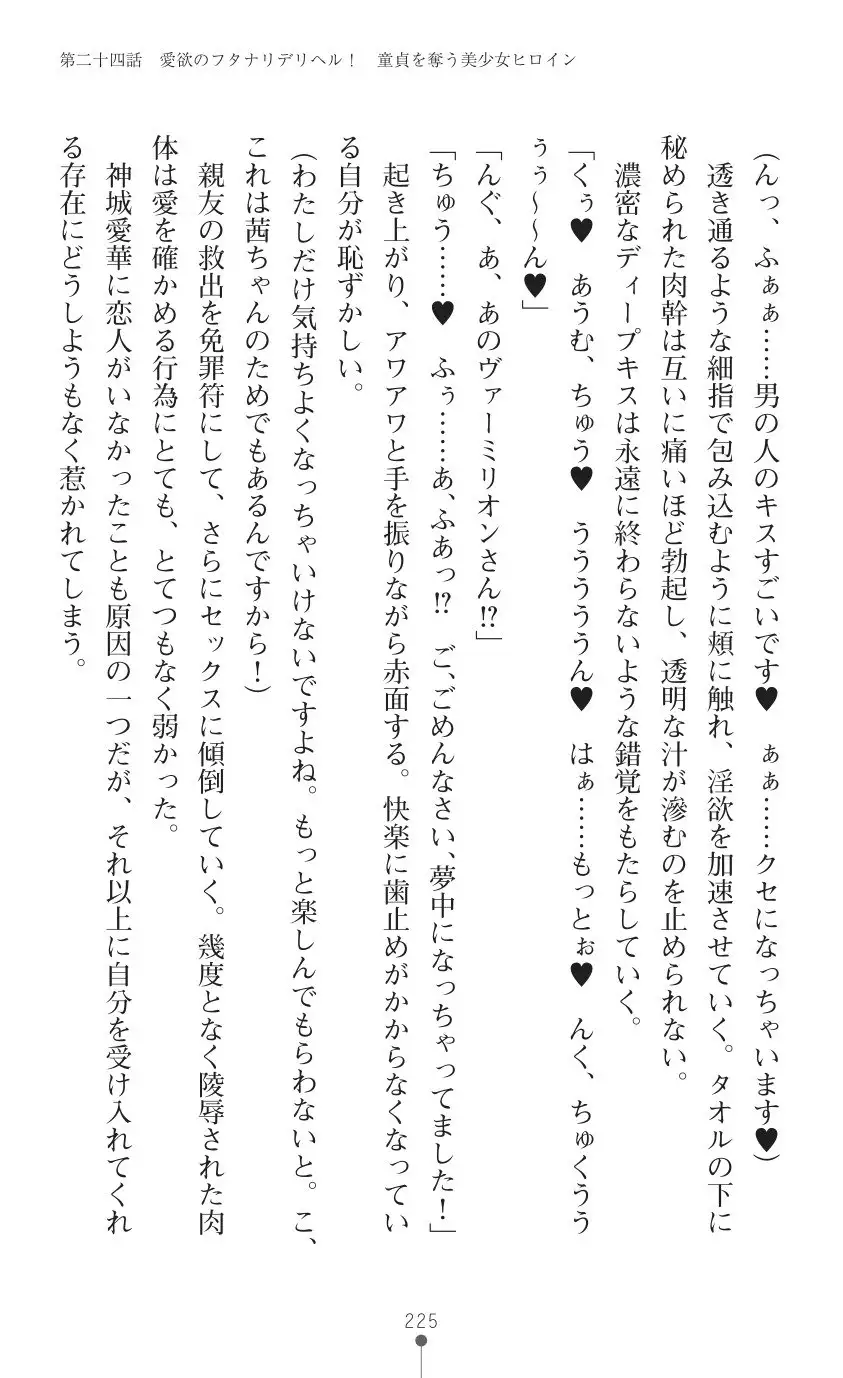 第二十四話　愛欲のフタナリデリヘル！　童貞を奪う美少女ヒロイン
（んっ、ふぁぁ……男の人のキスすごいです♥　ぁぁ……クセになっちゃいます♥）
透き通るような細指で包み込むように頰に触れ、淫欲を加速させていく。タオルの下に
秘められた肉幹は互いに痛いほど勃起し、透明な汁が滲むのを止められない。
濃密なディープキスは永遠に終わらないような錯覚をもたらしていく。
「くぅ♥　あうむ、ちゅう♥　うううううん♥　はぁ……もっとぉ♥　んく、ちゅくうう
ぅぅ～～ん♥」
「んぐ、あ、あのヴァーミリオンさん!?」
「ちゅう……♥　ふぅ……あ、ふあっ!?　ご、ごめんなさい、夢中になっちゃってました！」
起き上がり、アワアワと手を振りながら赤面する。快楽に歯止めがかからなくなってい
る自分が恥ずかしい。
（わたしだけ気持ちよくなっちゃいけないですよね。もっと楽しんでもらわないと。こ、
これは茜ちゃんのためでもあるんですから！）
親友の救出を免罪符にして、さらにセックスに傾倒していく。幾度となく陵辱された肉
体は愛を確かめる行為にとても、とてつもなく弱かった。
神城愛華に恋人がいなかったことも原因の一つだが、それ以上に自分を受け入れてくれ
る存在にどうしようもなく惹かれてしまう。
225